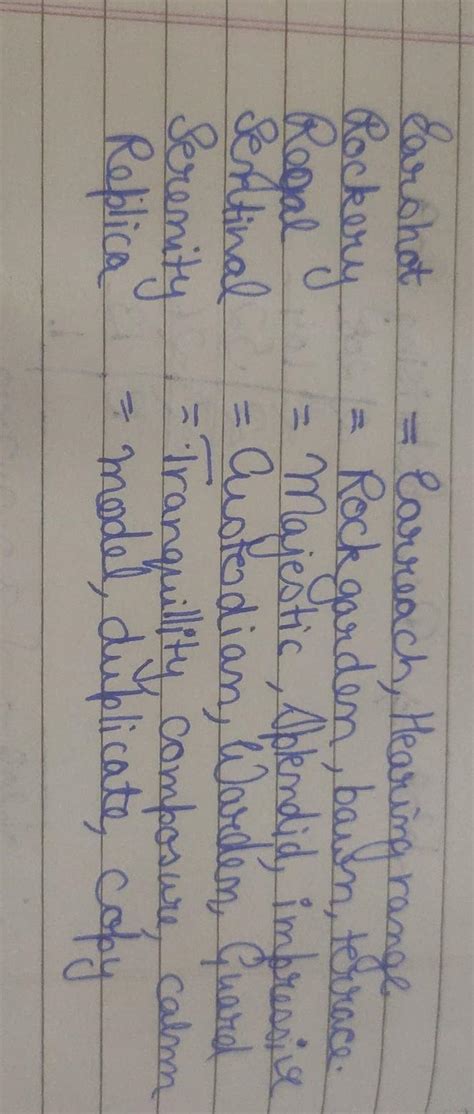 Earshot = Earreach, Hearing range.
Rockery = Rockgarden, bawn, terrace.
Regal = Majestic, Splendid, impressive
Sentinal = Custodian, Warden, Guard
Serenity = Tranquillity, composure, calm
Replica = model, duplicate, copy